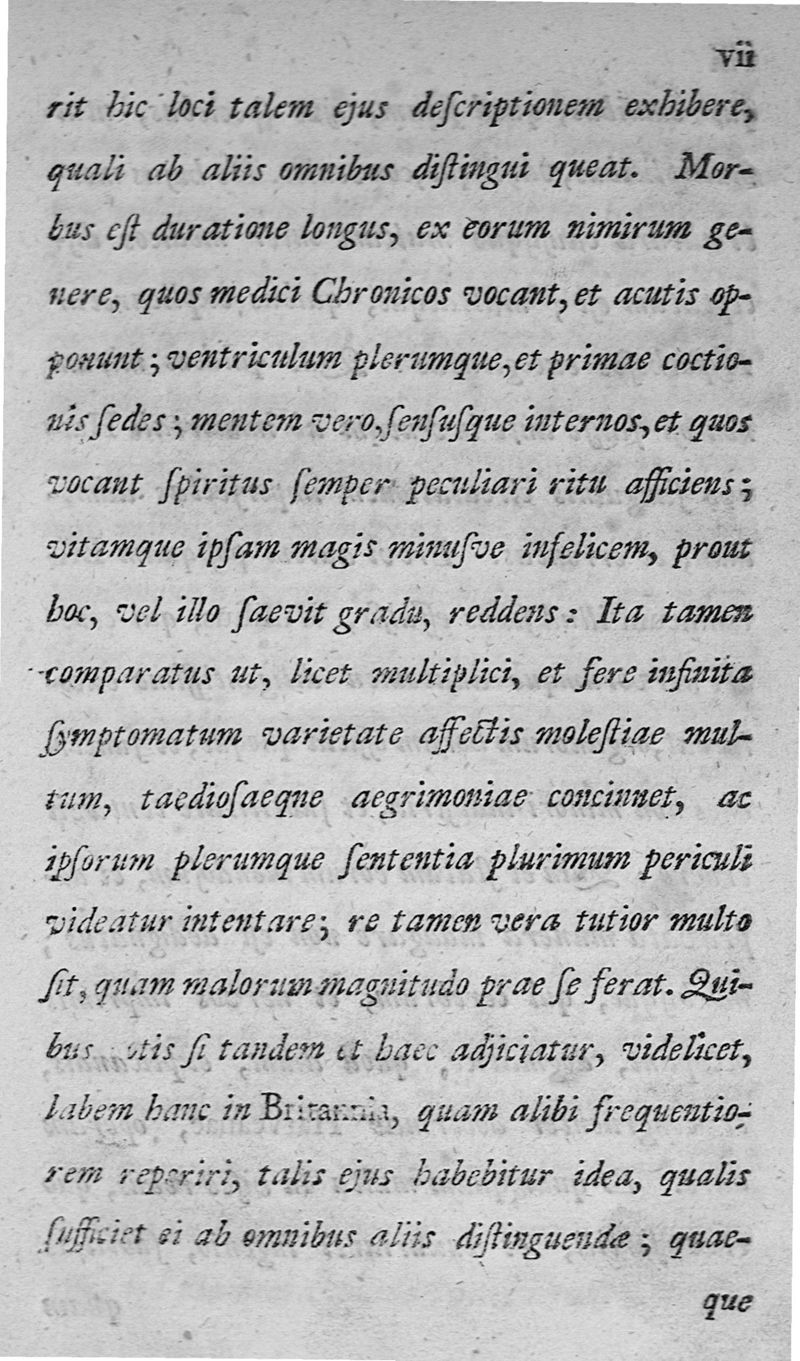 vii
rit hic loci talem ejus deſcriptionem exhibere,
quali ab aliis omnibus diſtingui queat. Mor-
bus eſt duratione longus, ex eorum nimirum ge-
nere, quos medici Chronicos vocant, et acutis op-
ponunt; ventriculum plerumque, et primae coctio-
nis ſedes; mentem vero, ſenſuſque internos, et quos
vocant ſpiritus ſemper peculiari ritu afficiens;
vitamque ipſam magis minuſve infelicem, prout
hoc, vel illo ſaevit gradu, reddens: Ita tamen
comparatus ut, licet multiplici, et fere infinita
ſymptomatum varietate affectis moleſtiae mul-
tum, taedioſaeque aegrimoniae concinnet, ac
ipſorum plerumque ſententia plurimum periculi
videatur intentare; re tamen vera tutior multo
ſit, quam malorum magnitudo prae ſe ferat. Qui-
bus ſi tandem et haec adjiciatur, videlicet,
labem hanc in Britannia, quam alibi frequentio-
rem reperiri, talis ejus habebitur idea, qualis
ſufficiet ei ab omnibus aliis diſtinguendæ; quae-
que